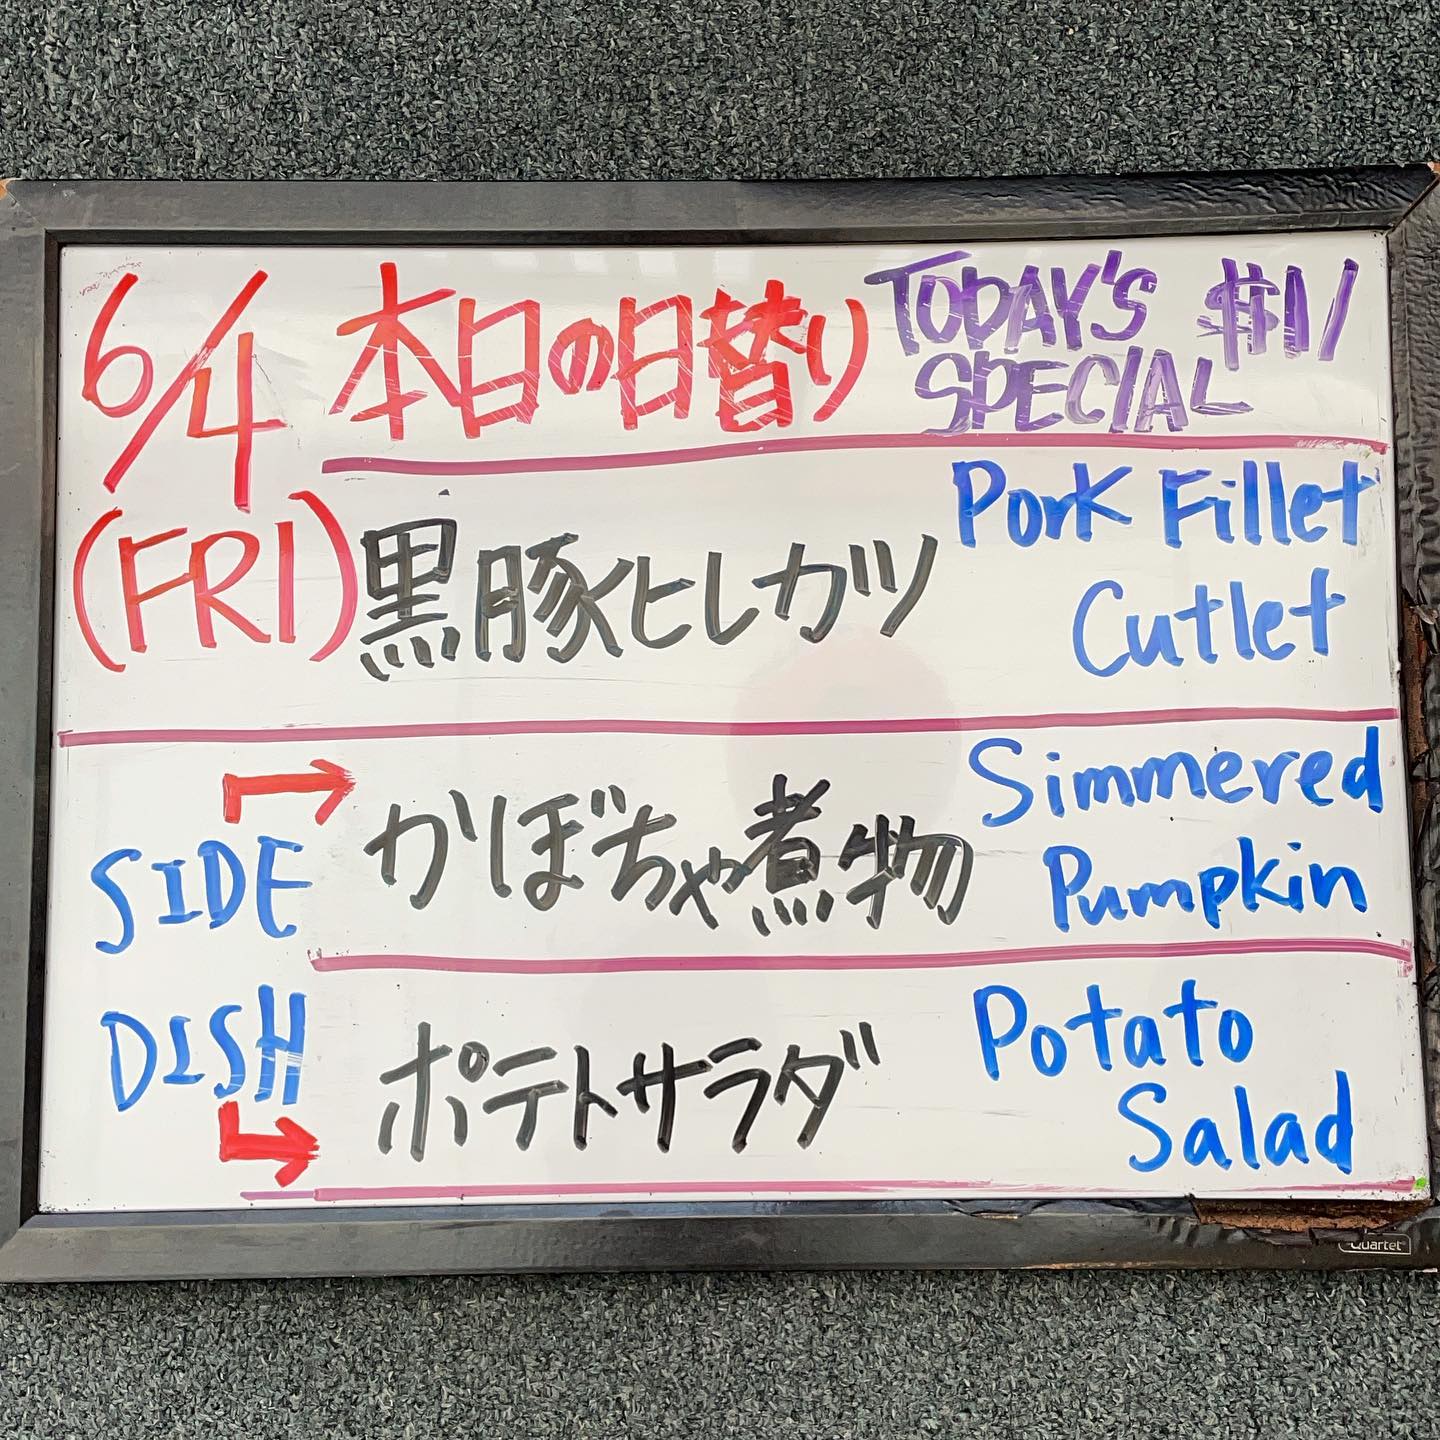 6/4 本日の日替り TODAY'S $11/
SPECIAL
(FRI) 黒豚ヒレカツ Pork Fillet
Cutlet
SIDE かぼちゃ煮物 Simmered
Pumpkin
DISH ポテトサラダ Potato
Salad
Quartet